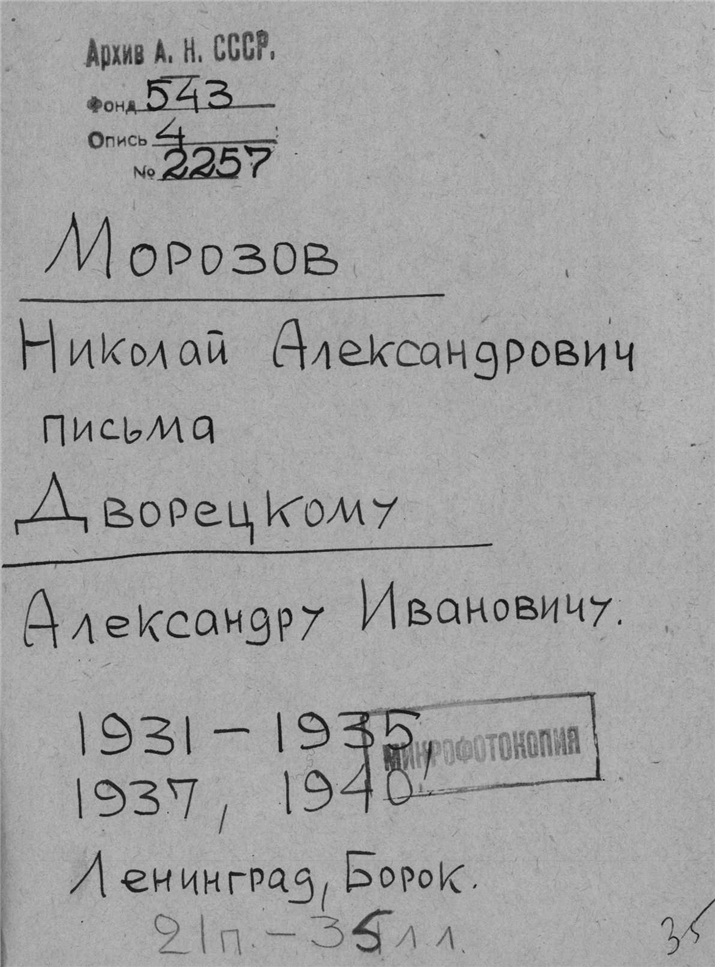 Архив А. Н. СССР.
Фонд 543
Опись 4
№ 2257
Морозов
Николай Александрович
письма
Дворецкому
Александру Ивановичу.
1931 – 1935,
МИКРОФОТОКОПИЯ
1937, 1940,
Ленинград, Борок.
21п. – 35 лл.
35